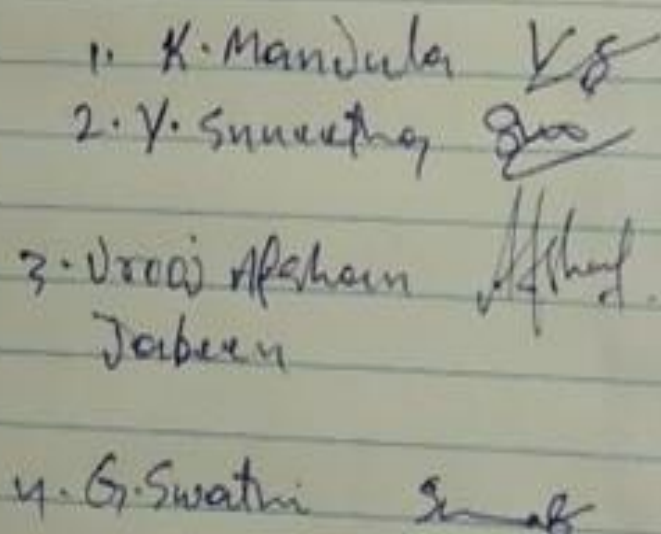 1. K. Manjula
2. Y. Suneetha
3. Urooj Afshan Afshan
Jabeen
4. G. Swathi